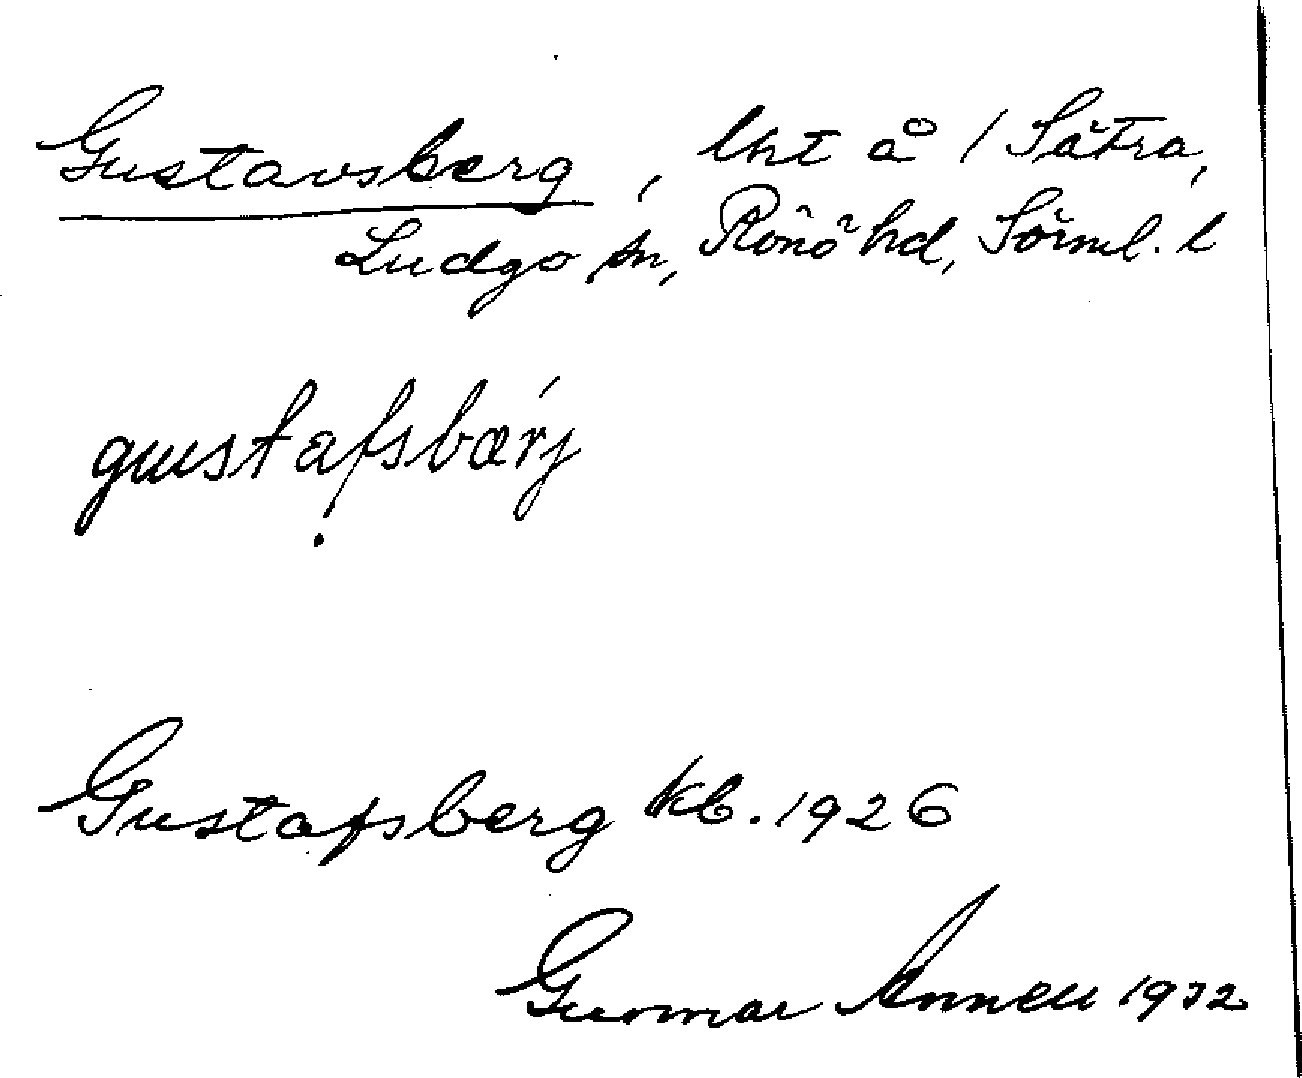 Gustavsberg, lht å / Sätra,
Ludgo sn, Rönö hd, Sörml. l
gustafsbærj
Gustafsberg kb. 1926
Gunnar Annell 1932